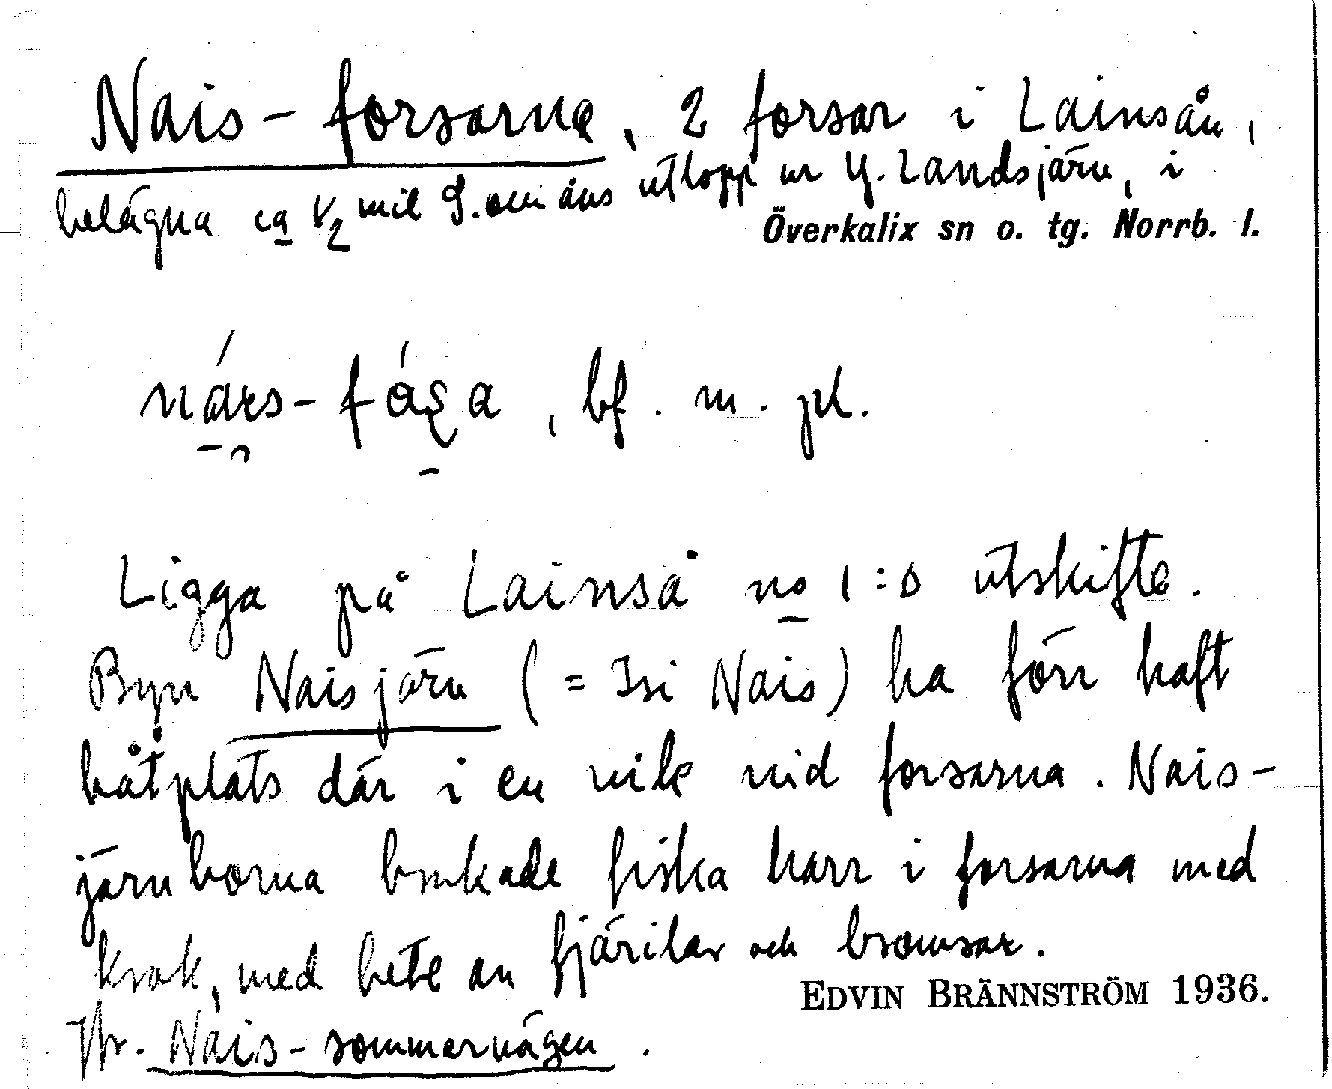 Nais-forsarna, 2 forsar i Lainsån,
belägna ca 1/2 mil S. om åns utlopp ur Y. Landsjärv, i
Överkalix sn o. tg. Norrb. l.
bf. m. pl.
Ligga på Lainså no 1:s utskifte.
Byn Naisjärv (= Isi Nais) ha förr haft
båtplats där i en vik vid forsarna. Nais-
järvborna brukade fiska harr i forsarna med
krok, med bete av fjärilar och bromsar.
EDVIN BRÄNNSTRÖM 1936.
Jfr. Nais-sommarvägen.